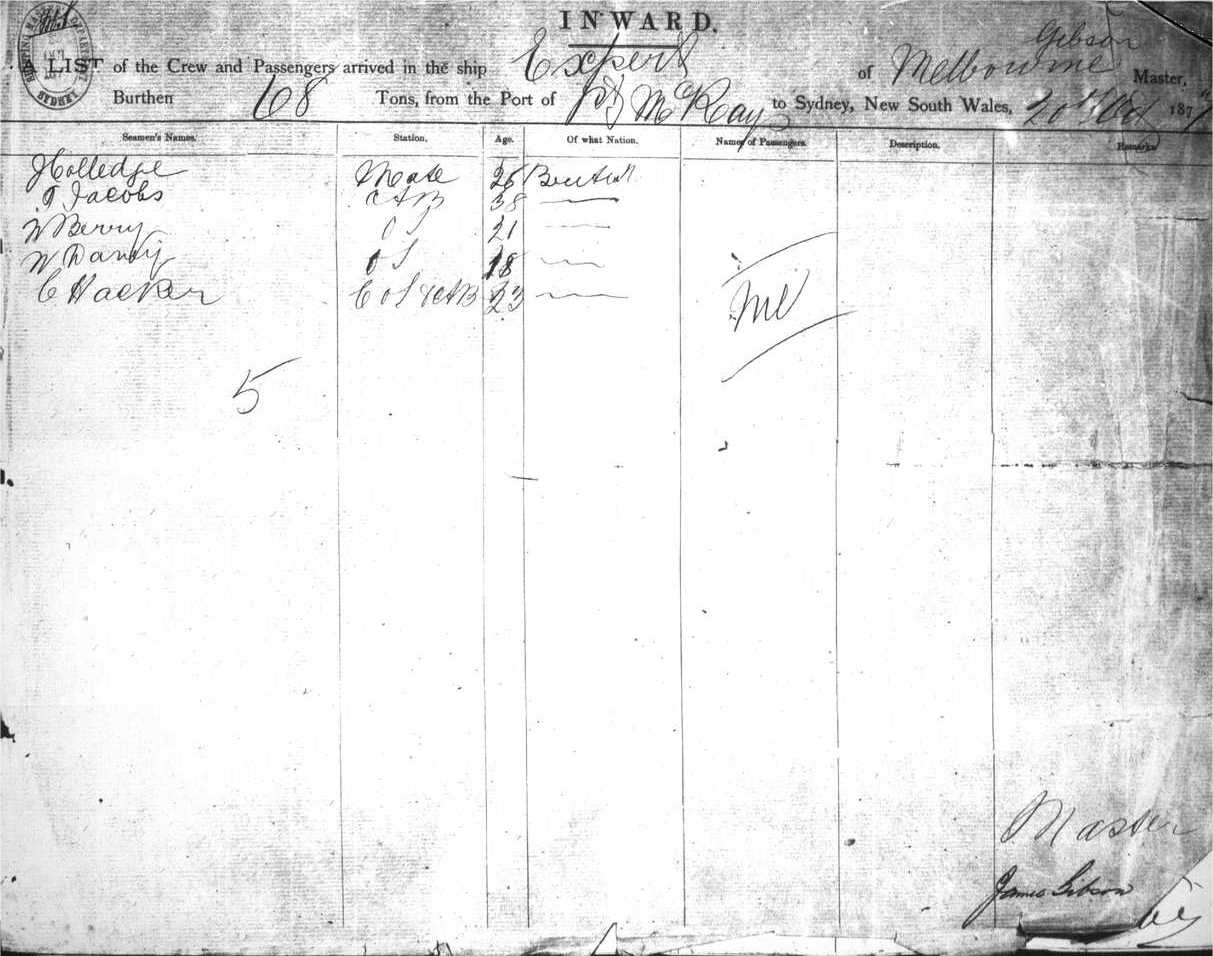 INWARD.
A LIST of the Crew and Passengers arrived in the ship Expert of Melbourne Gibson Master,
Burthen 68 Tons, from the Port of Pt McKay to Sydney, New South Wales, 20th Oct 1877
Seamen's Names. Station. Age. Of what Nation. Names of Passengers. Description. Remarks
J Holledge Mate 26 British
T Jacobs AB 38 —
W Berry OS 21 —
W Dandy OS 18 —
C Hacker C & AB 23 —
Nil
5
Master
James Gibson